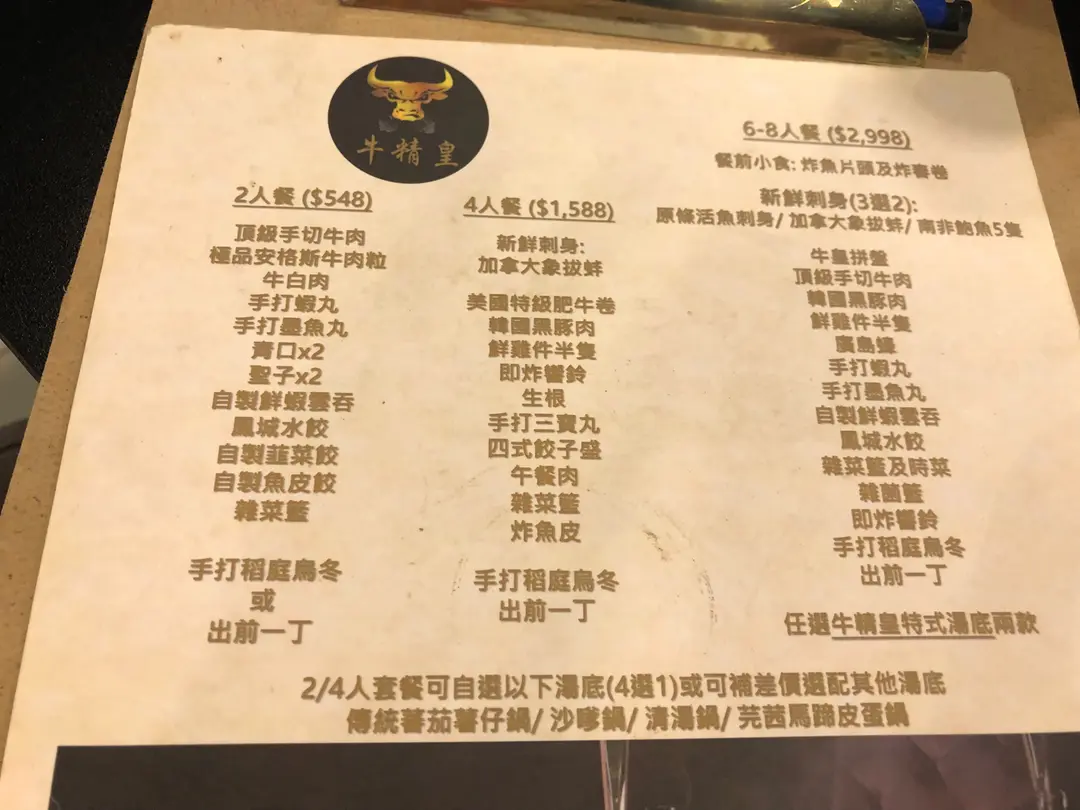 牛精皇
2人餐 ($548)
頂級手切牛肉
極品安格斯牛肉粒
牛白肉
手打蝦丸
手打墨魚丸
青口x2
聖子x2
自製鮮蝦雲吞
鳳城水餃
自製韮菜餃
自製魚皮餃
雜菜籃
手打稻庭烏冬
或
出前一丁
4人餐 ($1,588)
新鮮刺身:
加拿大象拔蚌
美國特級肥牛卷
韓國黑豚肉
鮮雞件半隻
即炸響鈴
生根
手打三寶丸
四式餃子盛
午餐肉
雜菜籃
炸魚皮
手打稻庭烏冬
出前一丁
6-8人餐 ($2,998)
餐前小食: 炸魚片頭及炸春卷
新鮮刺身(3選2):
原條活魚刺身/ 加拿大象拔蚌/ 南非鮑魚5隻
牛皇拼盤
頂級手切牛肉
韓國黑豚肉
鮮雞件半隻
廣島蠔
手打蝦丸
手打墨魚丸
自製鮮蝦雲吞
鳳城水餃
雜菜籃及時菜
雜菌籃
即炸響鈴
手打稻庭烏冬
出前一丁
任選牛精皇特式湯底兩款
2/4人套餐可自選以下湯底(4選1)或可補差價選配其他湯底
傳統蕃茄薯仔鍋/ 沙嗲鍋/ 清湯鍋/ 芫茜馬蹄皮蛋鍋